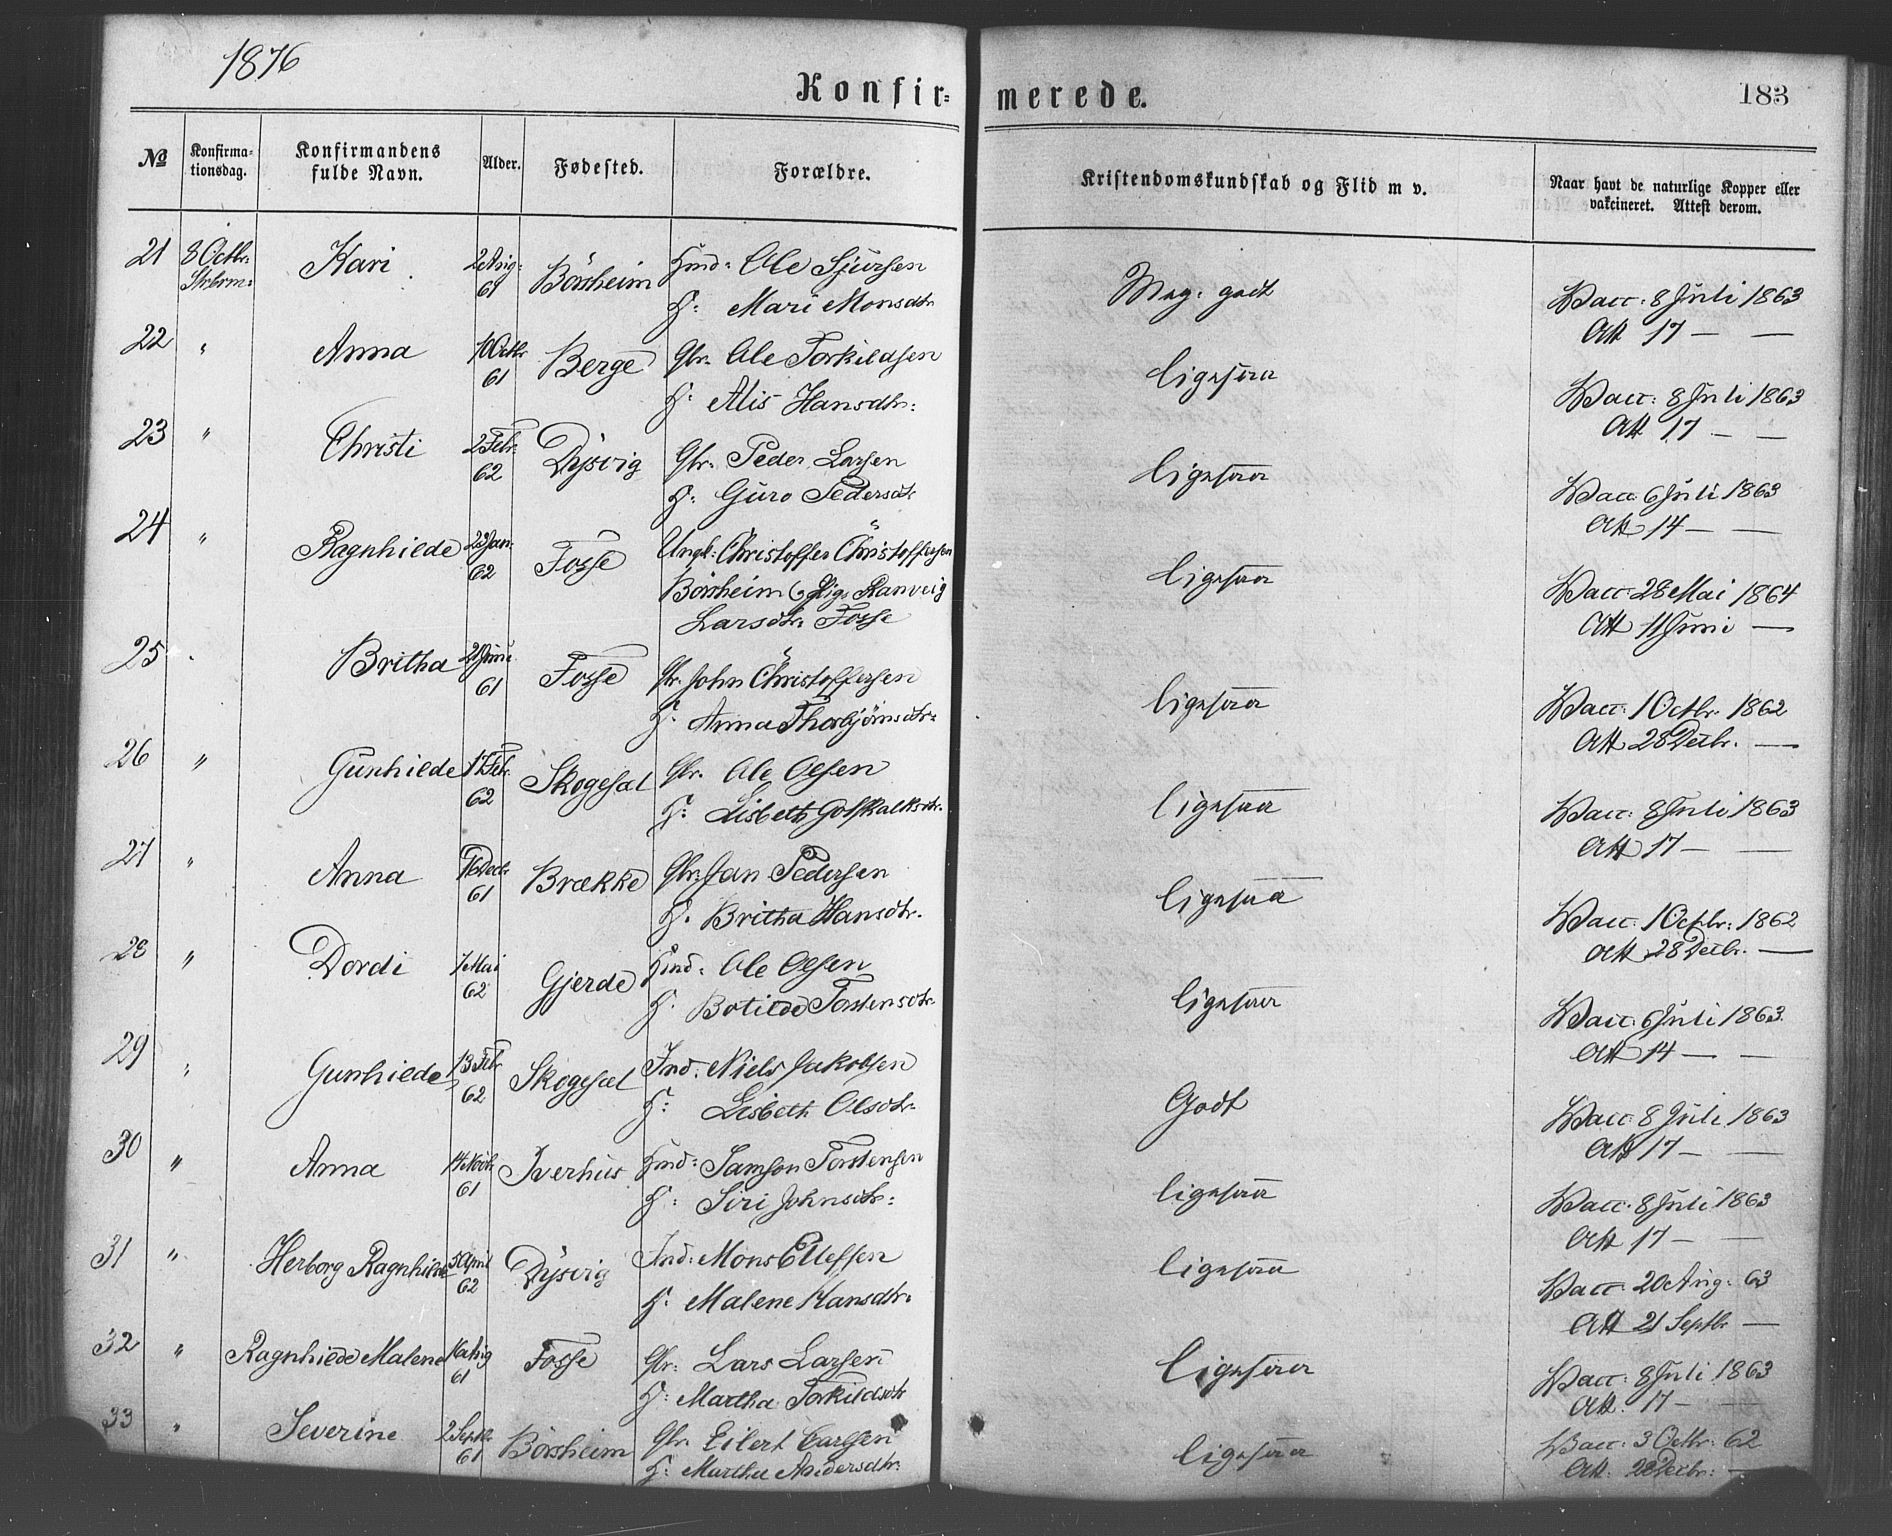 1876
Konfir-
merede.
183
No
Konfirma-
tionsdag.
Konfirmandens
fulde Navn.
Alder.
Fødested.
Forældre.
Kristendomskundskab og Flid m v.
Naar havt de naturlige Kopper eller
vakcineret. Attest derom.
21 8 Octbr. Kari 2 Aug: Börsheim Hmd: Ole Sjursen Meg. godt Vacc: 8 Juli 1863
61 H: Mari Monsdtr Att 17 — —
22 " Anna Octbr Berge Gbr. Ole Torkildsen ligesaa Vacc: 8 Juli 1863
61 H: Alis Hansdtr: Att 17 — —
23 " Christi 2 Febr. Dysvig Gbr. Peder Larsen ligesaa Vacc: 6 Juli 1863
62 H: Guro Pedersdtr Att 14 — —
24 " Ragnhilde 23 Jan: Fosse Ungk: Christoffer Christoffersen ligesaa Vacc: 28 Mai 1864
62 Börsheim & Pige Ranveig Att 11 Juni —
Larsdtr. Fosse
25 . Britha Juni Fosse Gbr. John Christoffersen ligesaa Vacc: 1 Octbr. 1862
61 H: Anna Thorbjörnsdtr: Att 28 Decbr. —
26 " Gunhilde 17 Febr. Skogesæl Gbr. Ole Olsen ligesaa Vacc: 8 Juli 1863
62 H: Lisbeth Gotskalksdtr. Att 17 — —
27 " Anna 16 Decbr. Brække Gbr. Jan Pedersen ligesaa Vacc: 1 Octbr: 1862
61 H. Britha Hansdtr. Att 28 Decbr. —
28 " Dordi 7 Mai Gjerde Hmd: Ole Olsen ligesaa Vacc: 6 Juli 1863
62 H. Botilde Torstensdtr. Att 14 — —
29 " Gunhilde 13 Febr Skogesæl Ind: Niels Jakobsen Godt Vacc: 8 Juli 1863
62 H: Lisbeth Olsdtr. Att 17 — —
30 " Anna 14 Novbr Iverhus Hmd: Samson Torstensen ligesaa Vacc: 8 Juli 1863
61 H: Siri Johnsdtr: Att 17 — —
31 " Herborg Ragnhilde April Dysvig Ind: Mons Ellefsen ligesaa Vacc: 20 Aug: 63
62 H: Malene Hansdtr. Att 21 Septbr —
32 " Ragnhilde Malene 16 Aug Fosse Gbr: Lars Larsen ligesaa Vacc: 8 Juli 1863
61 H: Martha Torkildsdtr Att. 17 — —
33 " Severine 2 Septbr Börsheim Gbr. Eilert Carlsen ligesaa Vacc: 3 Octbr: 62
61 H: Martha Andersdtr. Att: 28 Decbr: —